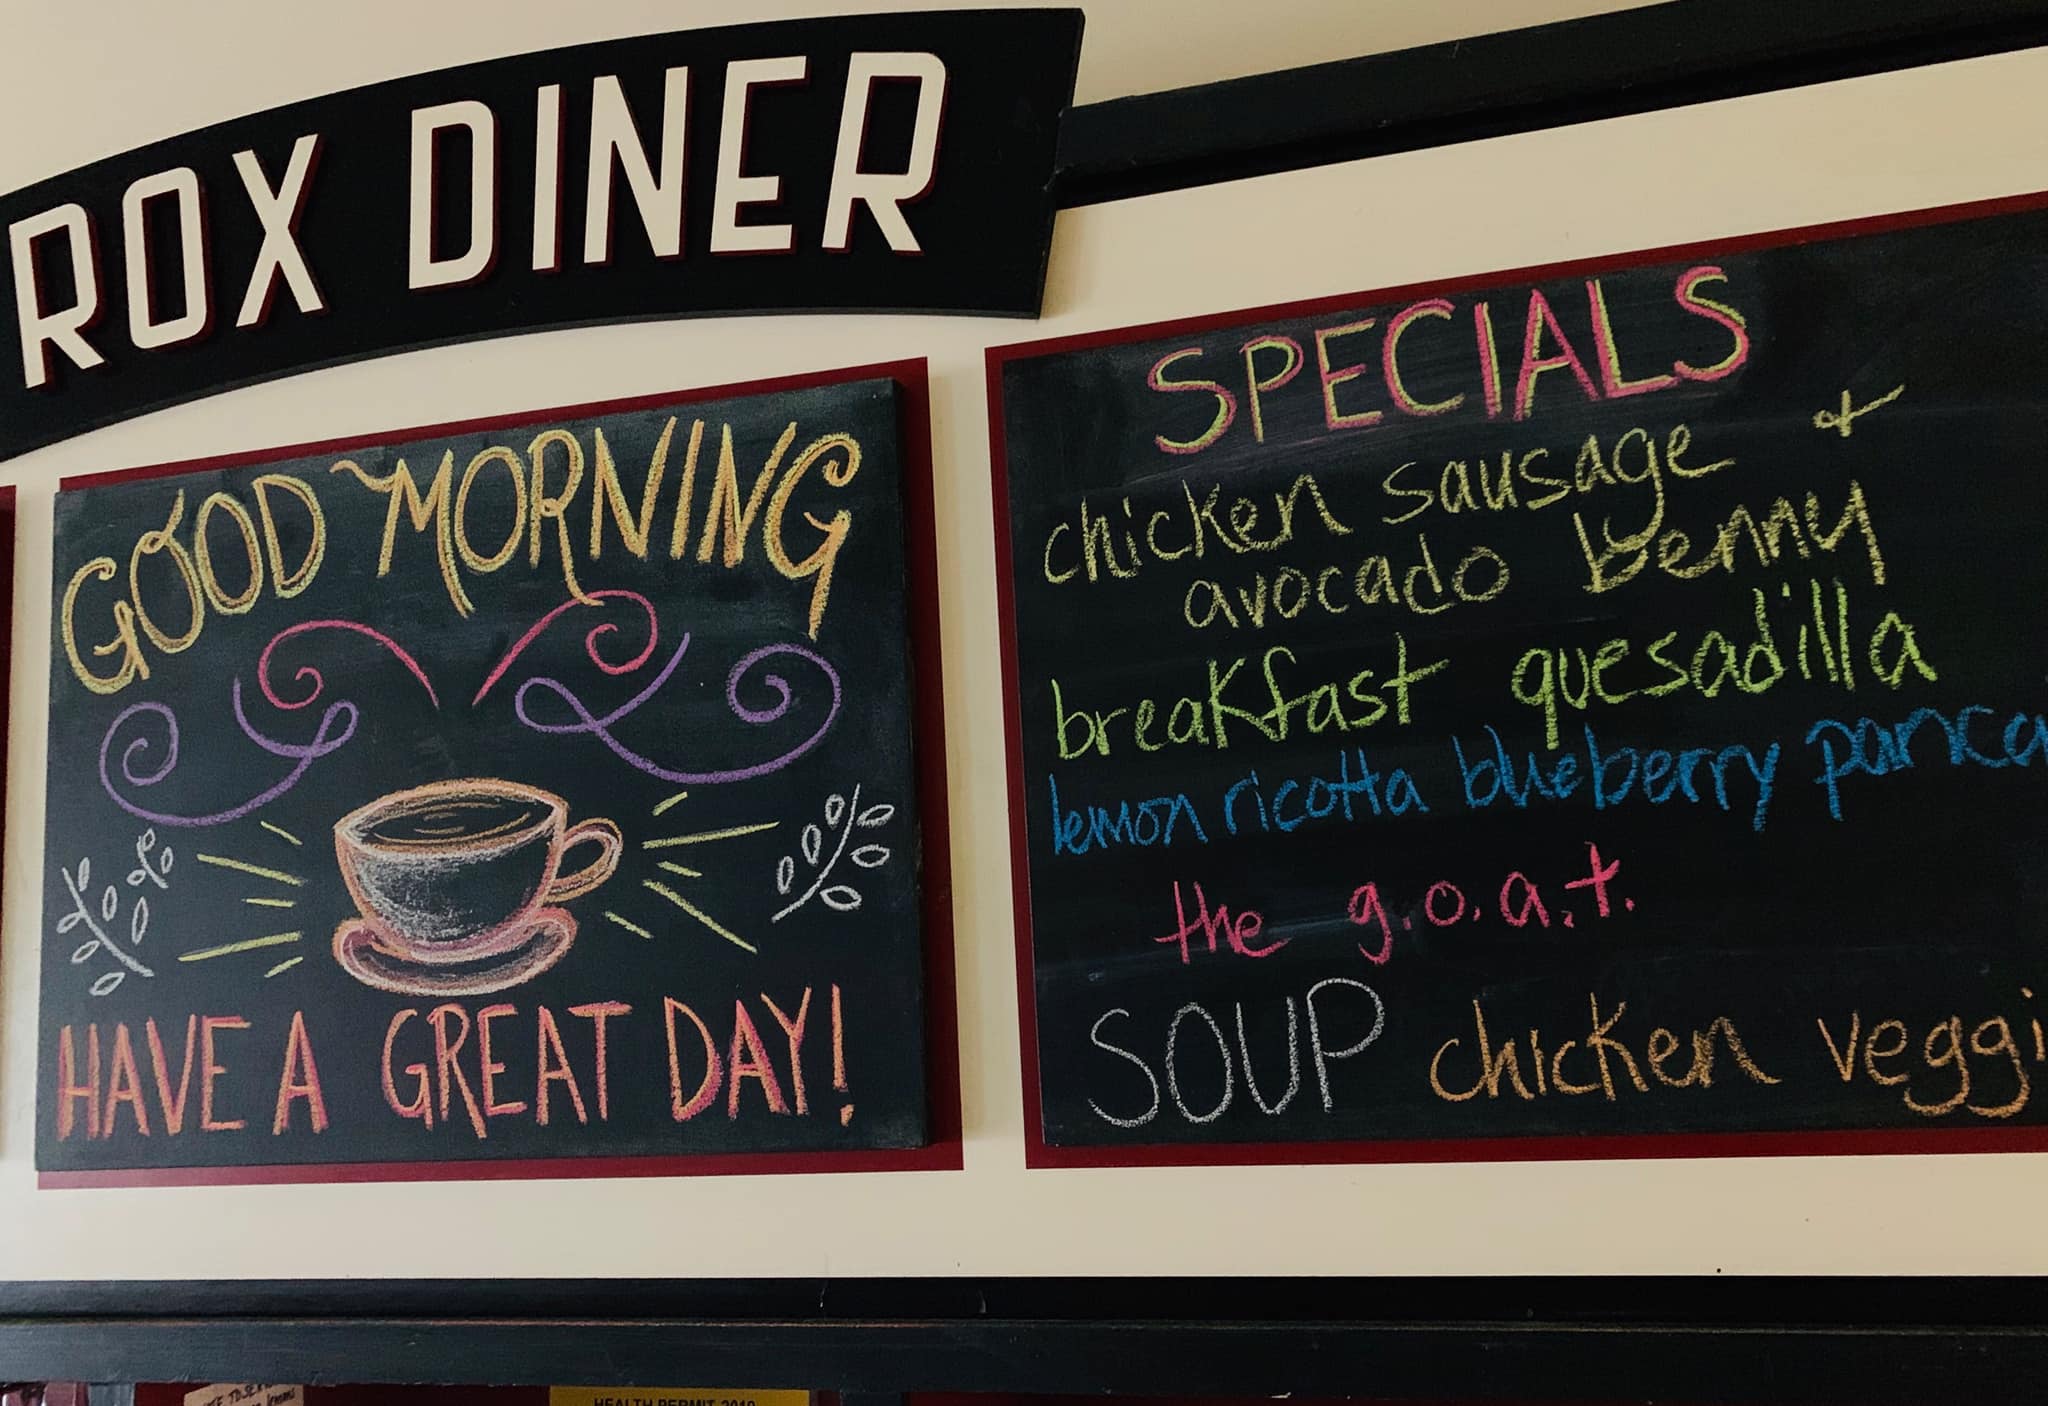 ROX DINER
GOOD MORNING
HAVE A GREAT DAY!
SPECIALS
chicken sausage +
avocado benny
breakfast quesadilla
lemon ricotta blueberry panca
the g.o.a.t.
SOUP chicken veggi
HEALTH PERMIT 2019